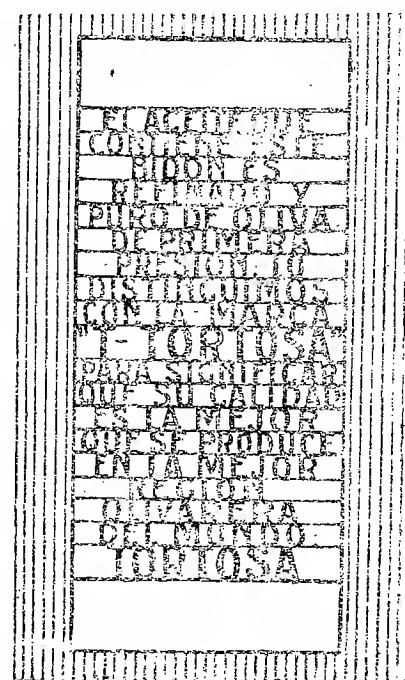 EL ACEITE QUE
CONTIENE ESTE
BIDON ES
REFINADO Y
PURO DE OLIVA
DE PRIMERA
PRESION. LO
DISTINGUIMOS
CON LA MARCA
"1-TORTOSA"
PARA SIGNIFICAR
QUE SU CALIDAD
ES LA MEJOR
QUE SE PRODUCE
EN LA MEJOR
REGION
OLIVARERA
DEL MUNDO
TORTOSA